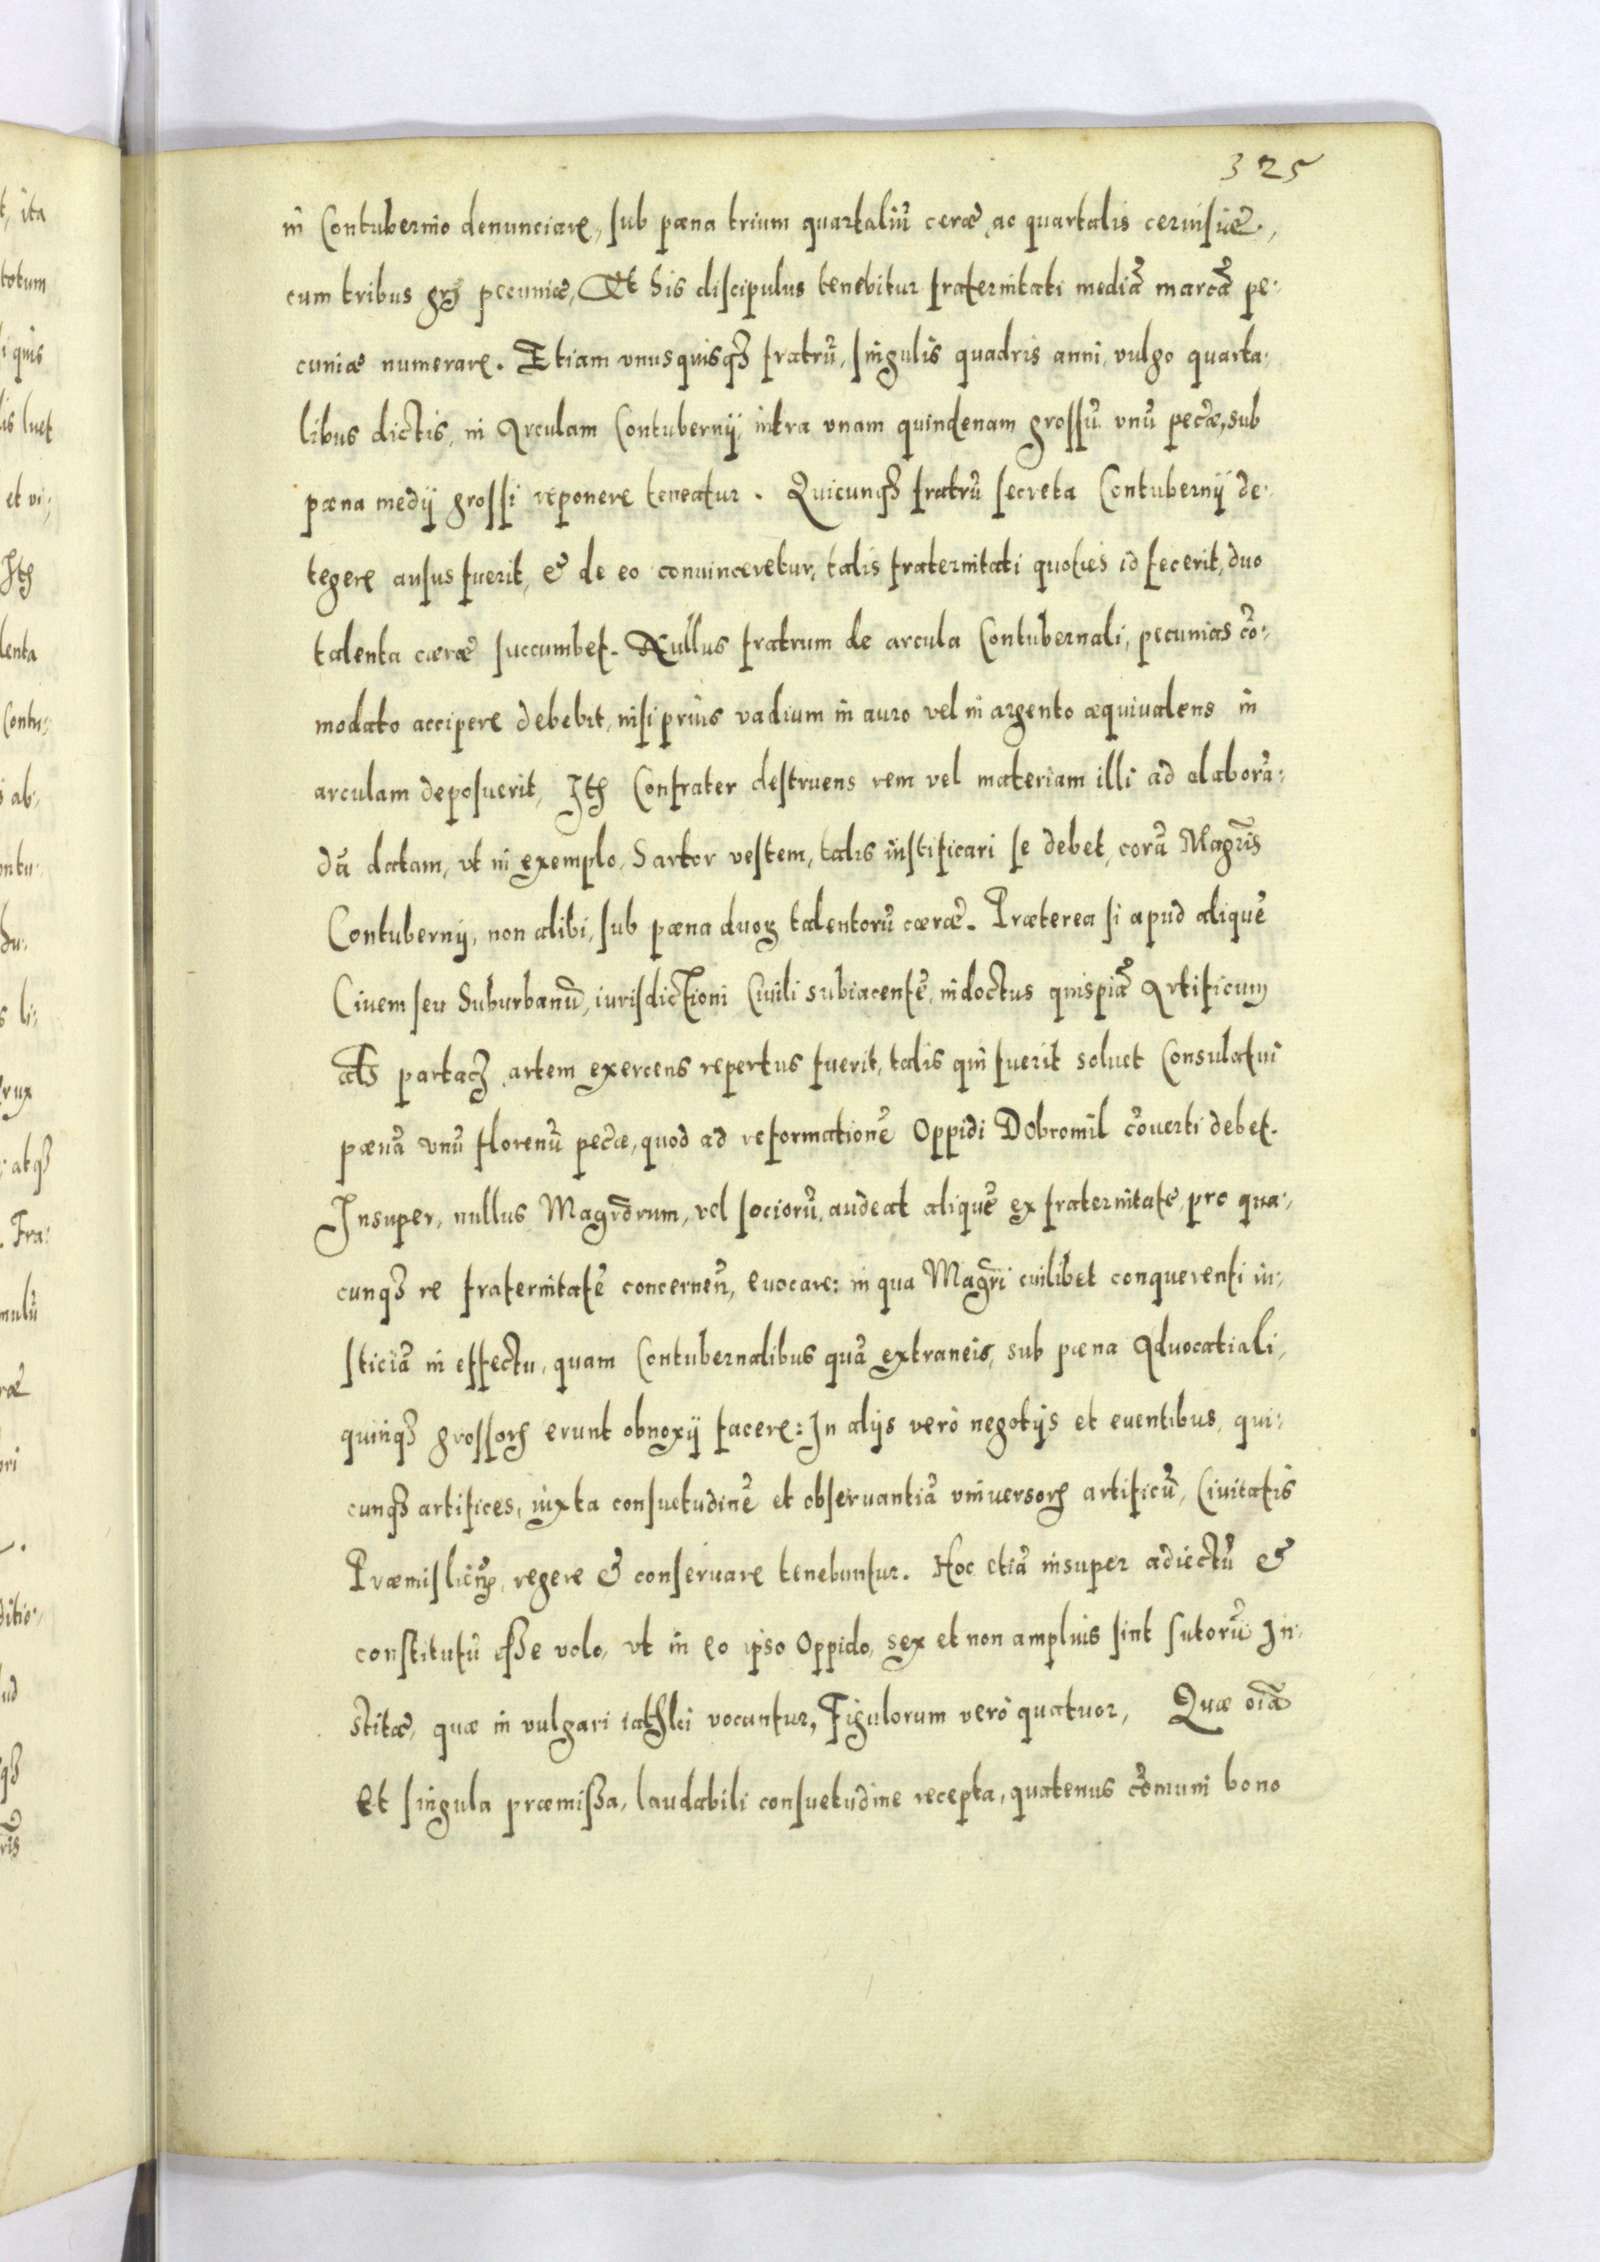 325
in Contubernio denunciare, sub pæna trium quartaliũ ceræ, ac quartalis ceruisiæ,
cum tribus grs pecuniæ, Et his discipulus tenebitur fraternitati mediã marcã pe-
cuniæ numerare. Etiam vnusquisqȝ fratrũ, singulis quadris anni, vulgo quarta-
libus dictis, in Arculam Contubernij, intra vnam quindenam grossũ vnũ pecæ, sub
pæna medij grossi reponere teneatur. Quicunqȝ fratrũ secreta Contubernij de-
tegere ausus fuerit, & de eo conuinceretur, talis fraternitati quoties id fecerit, duo
talenta cæræ succumbet. Nullus fratrum de arcula Contubernali, pecunias cõ-
modato accipere debebit, nisi prius vadium in auro vel in argento æquiualens in
arculam deposuerit, Itꝫ Confrater destruens rem vel materiam illi ad elaborã-
dũ datam, vt in exemplo, Sartor vestem, talis iustificari se debet, corã Magrĩs
Contubernij, non alibi, sub pæna duoꝝ talentorũ cæræ. Præterea si apud aliquẽ
Ciuem seu Suburbanũ, iurisdictioni Ciuili subiacentẽ, indoctus quispiã Artificum
als partacȝ artem exercens repertus fuerit, talis qui fuerit soluet Consulatui
pænã vnũ florenũ pecæ, quod ad reformationẽ Oppidi Dobromil cõuerti debet.
Insuper, nullus Magrõrum, vel sociorũ, audeat aliquẽ ex fraternitate, pro qua-
cunqȝ re fraternitatẽ concerneñ, euocare: in qua Magrĩ cuilibet conquerenti iu-
sticiã in effectu, quam Contubernalibus quã extraneis, sub pæna Aduocatiali,
quinqȝ grossorꝫ erunt obnoxij facere: In alijs verò negotijs et euentibus, qui-
cunqȝ artifices, iuxta consuetudinẽ et obseruantiã vniuersorꝫ artificũ, Ciuitatis
Præmislieñ, regere & conseruare tenebuntur. Hoc etiã insuper adiectũ &
constitutũ esse volo, vt in eo ipso Oppido, sex et non amplius sint sutorũ In-
stitæ, quæ in vulgari iathki vocantur, Figulorum verò quatuor, Quæ oĩa
Et singula præmissa, laudabili consuetudine recepta, quatenus cõmuni bono